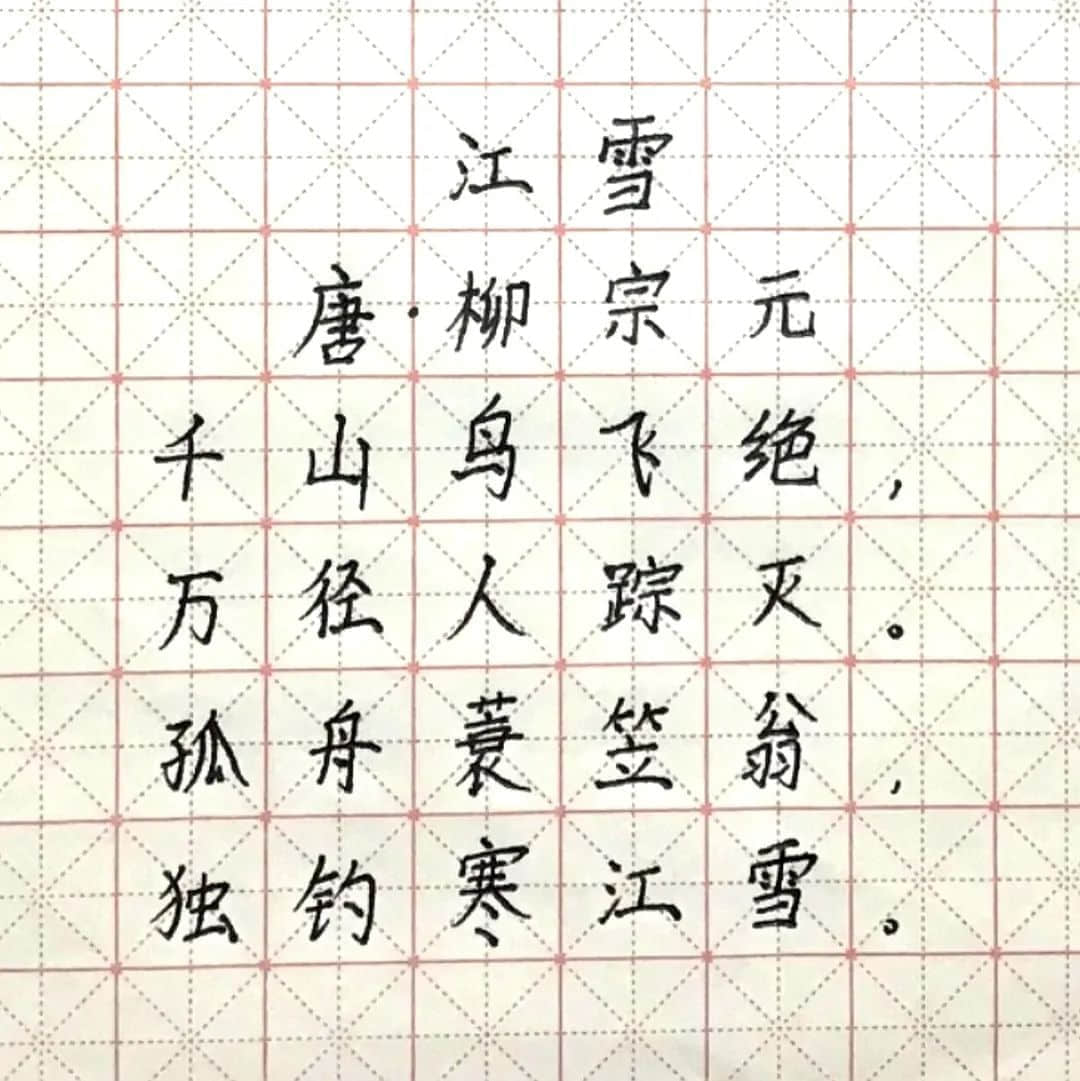 江雪
唐·柳宗元
千山鸟飞绝，
万径人踪灭。
孤舟蓑笠翁，
独钓寒江雪。